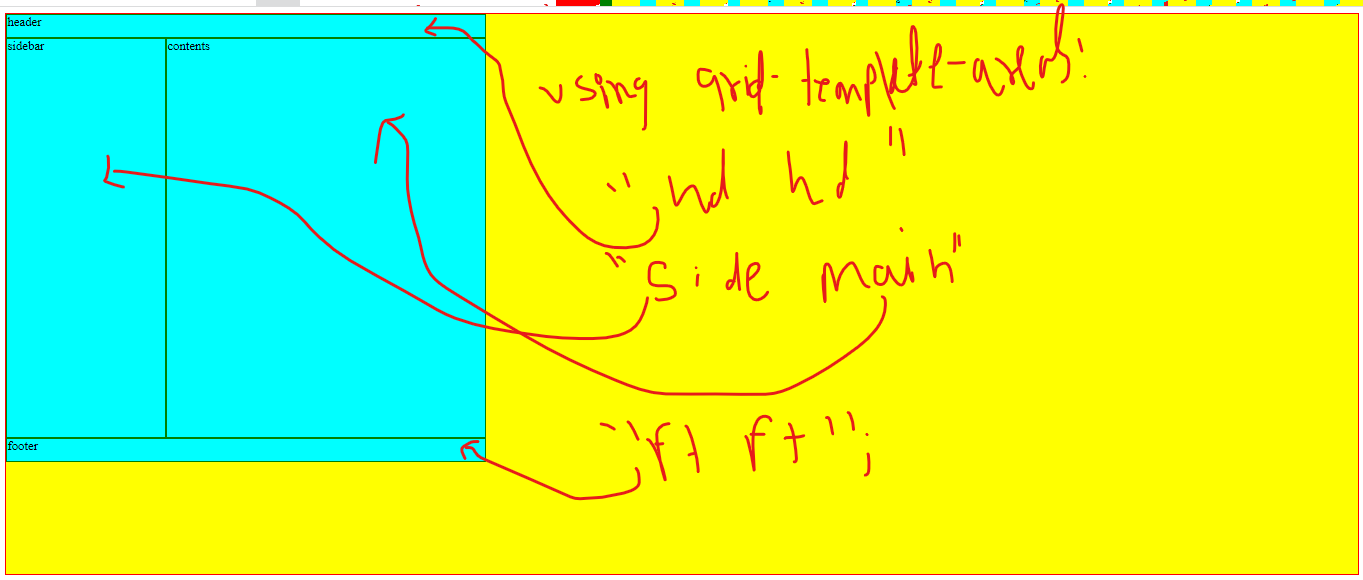 header
sidebar contents
using grid-templete-areas:
"hd hd"
"side main"
"ft ft";
footer